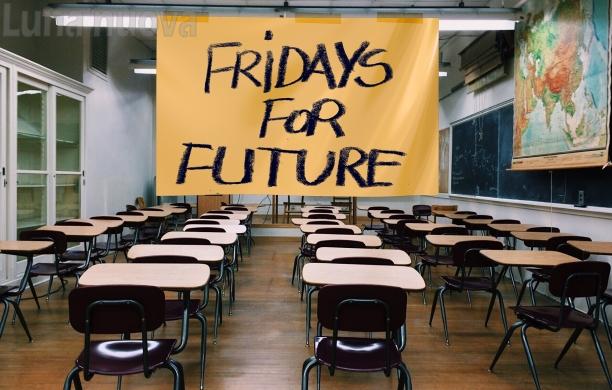 Luna nuova
FRiDAYS
FoR
FUTURE